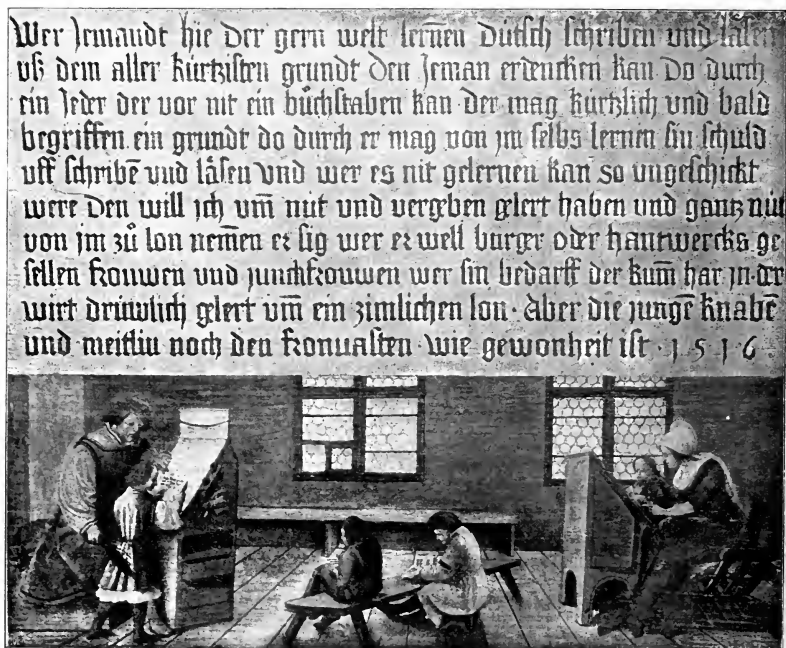 Wer Jemandt hie Der gern welt lern̄en Dütsch schriben und läsen
uß dem aller kürtzisten grundt Den Jeman erdencken kan Do durch
ein Jeder der vor nit ein bůchstaben kan Der mag kürtzlich und bald
begriffen ein grundt do durch er mag von jm selbs lernen sin schuld
uff schribē und läsen Und wer es nit gelernen kan so ungeschickt
were Den will jch um̄ nüt und vergeben glert haben und gantz nüt
von jm zů lon nem̄en er sig wer er well burger oder hantwercks ge
sellen frouwen und junckfrouwen wer sin bedarff der kum̄ har jn der
wirt drüwlich glert um̄ ein zimlichen lon · Aber die jungē knabē
und meitlin noch den fronuasten wie gewonheit ist · 1 5 1 6